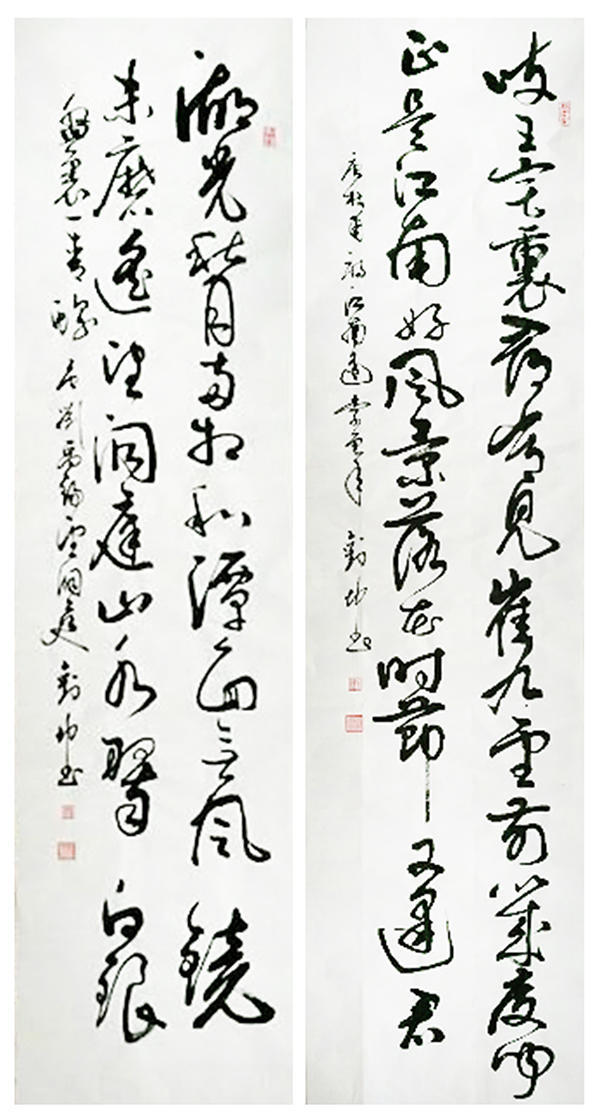 岐王宅裏尋常見崔九堂前幾度聞
正是江南好風景落花時節又逢君
唐杜甫詩江南逢李龜年 劉 书
湖光秋月兩相和潭面無風鏡
未磨遙望洞庭山水翠白銀
盤裏一青螺 唐劉禹錫望洞庭 劉 书